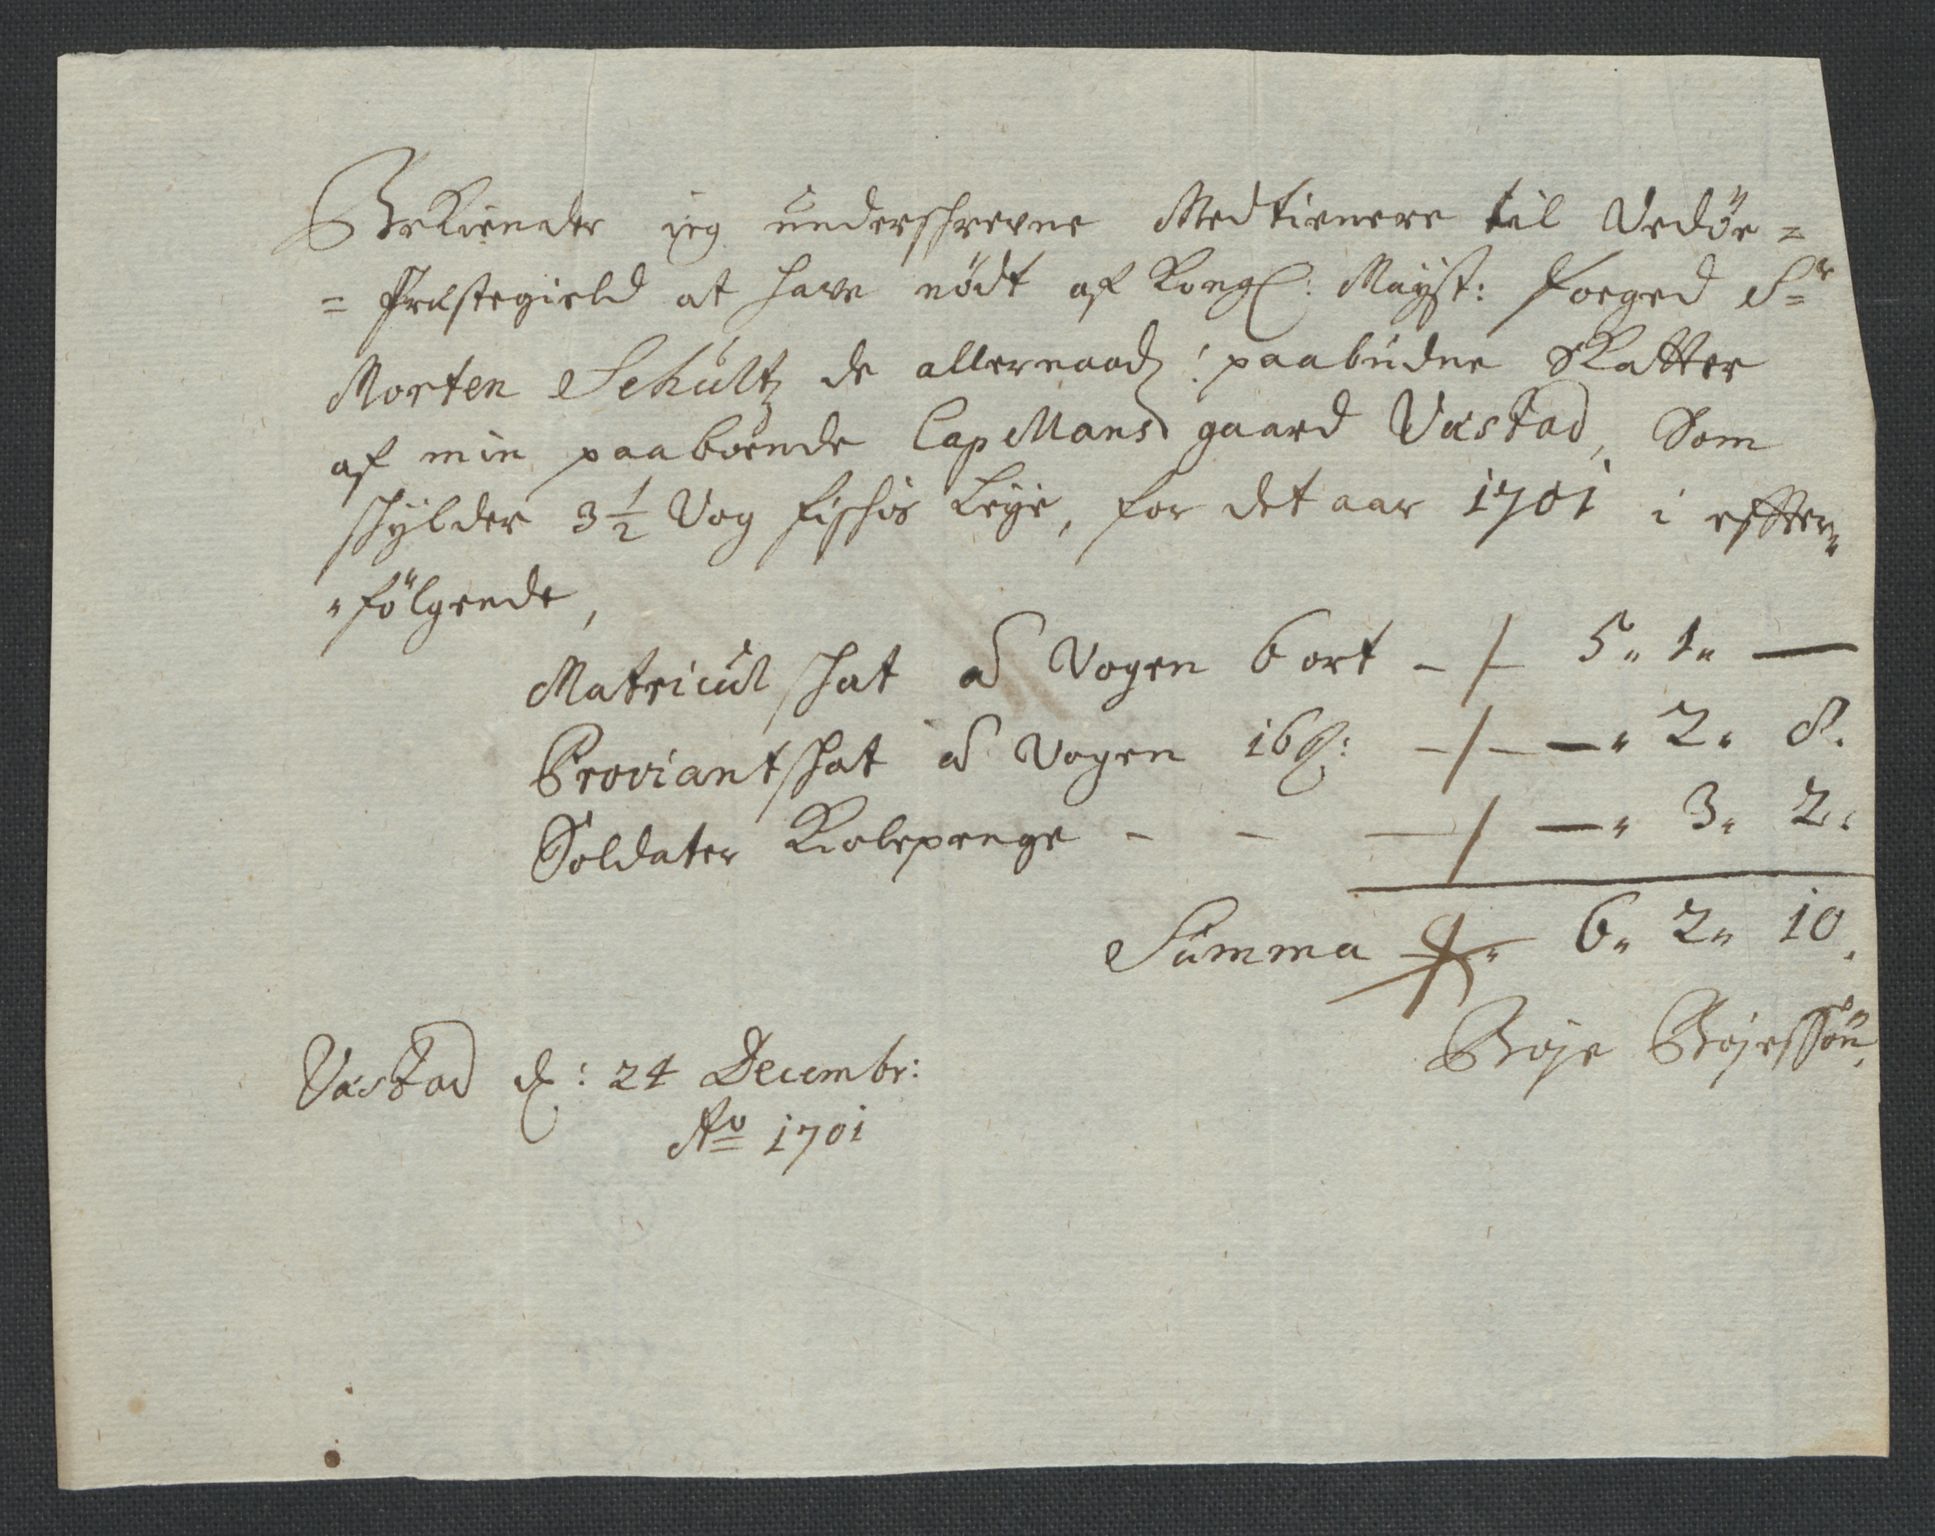 Bekiender ieg underschrevne Medtienere til Vedøe=
=Præstegield at have nødt af Kongl: Mayst: Foeged Sr
Morten Schültz de allernaad: paabudne Skatter
af min paaboende CapelMans gaard Væstad, Som
schylder 3 1/2 Vog fischis Leye, for det aar 1701 i effter„
„følgende,
Matricul schat â Vogen 6 ort - / - 5„ 1„ —
Proviantschat â Vogen 16 ß: - / - —„ 2„ 8.
Soldater Kiolepenge - - - / —„ 3„ 2„
Summa 6„ 2„ 10.
Væstad d: 24 Decembr:
Ao 1701
Boje Bojessøn,